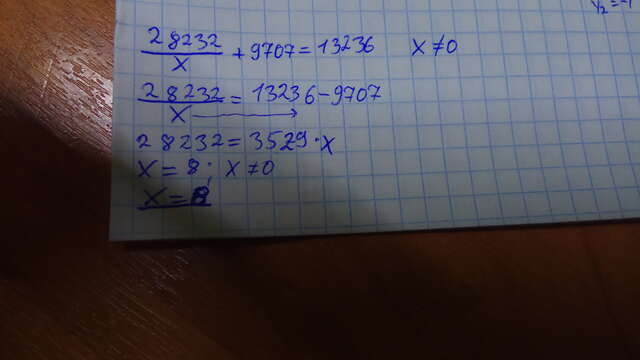 28232/x + 9707 = 13236 x ≠ 0
28232/x = 13236 - 9707
28232 = 3529 · x
x = 8; x ≠ 0
x = 8